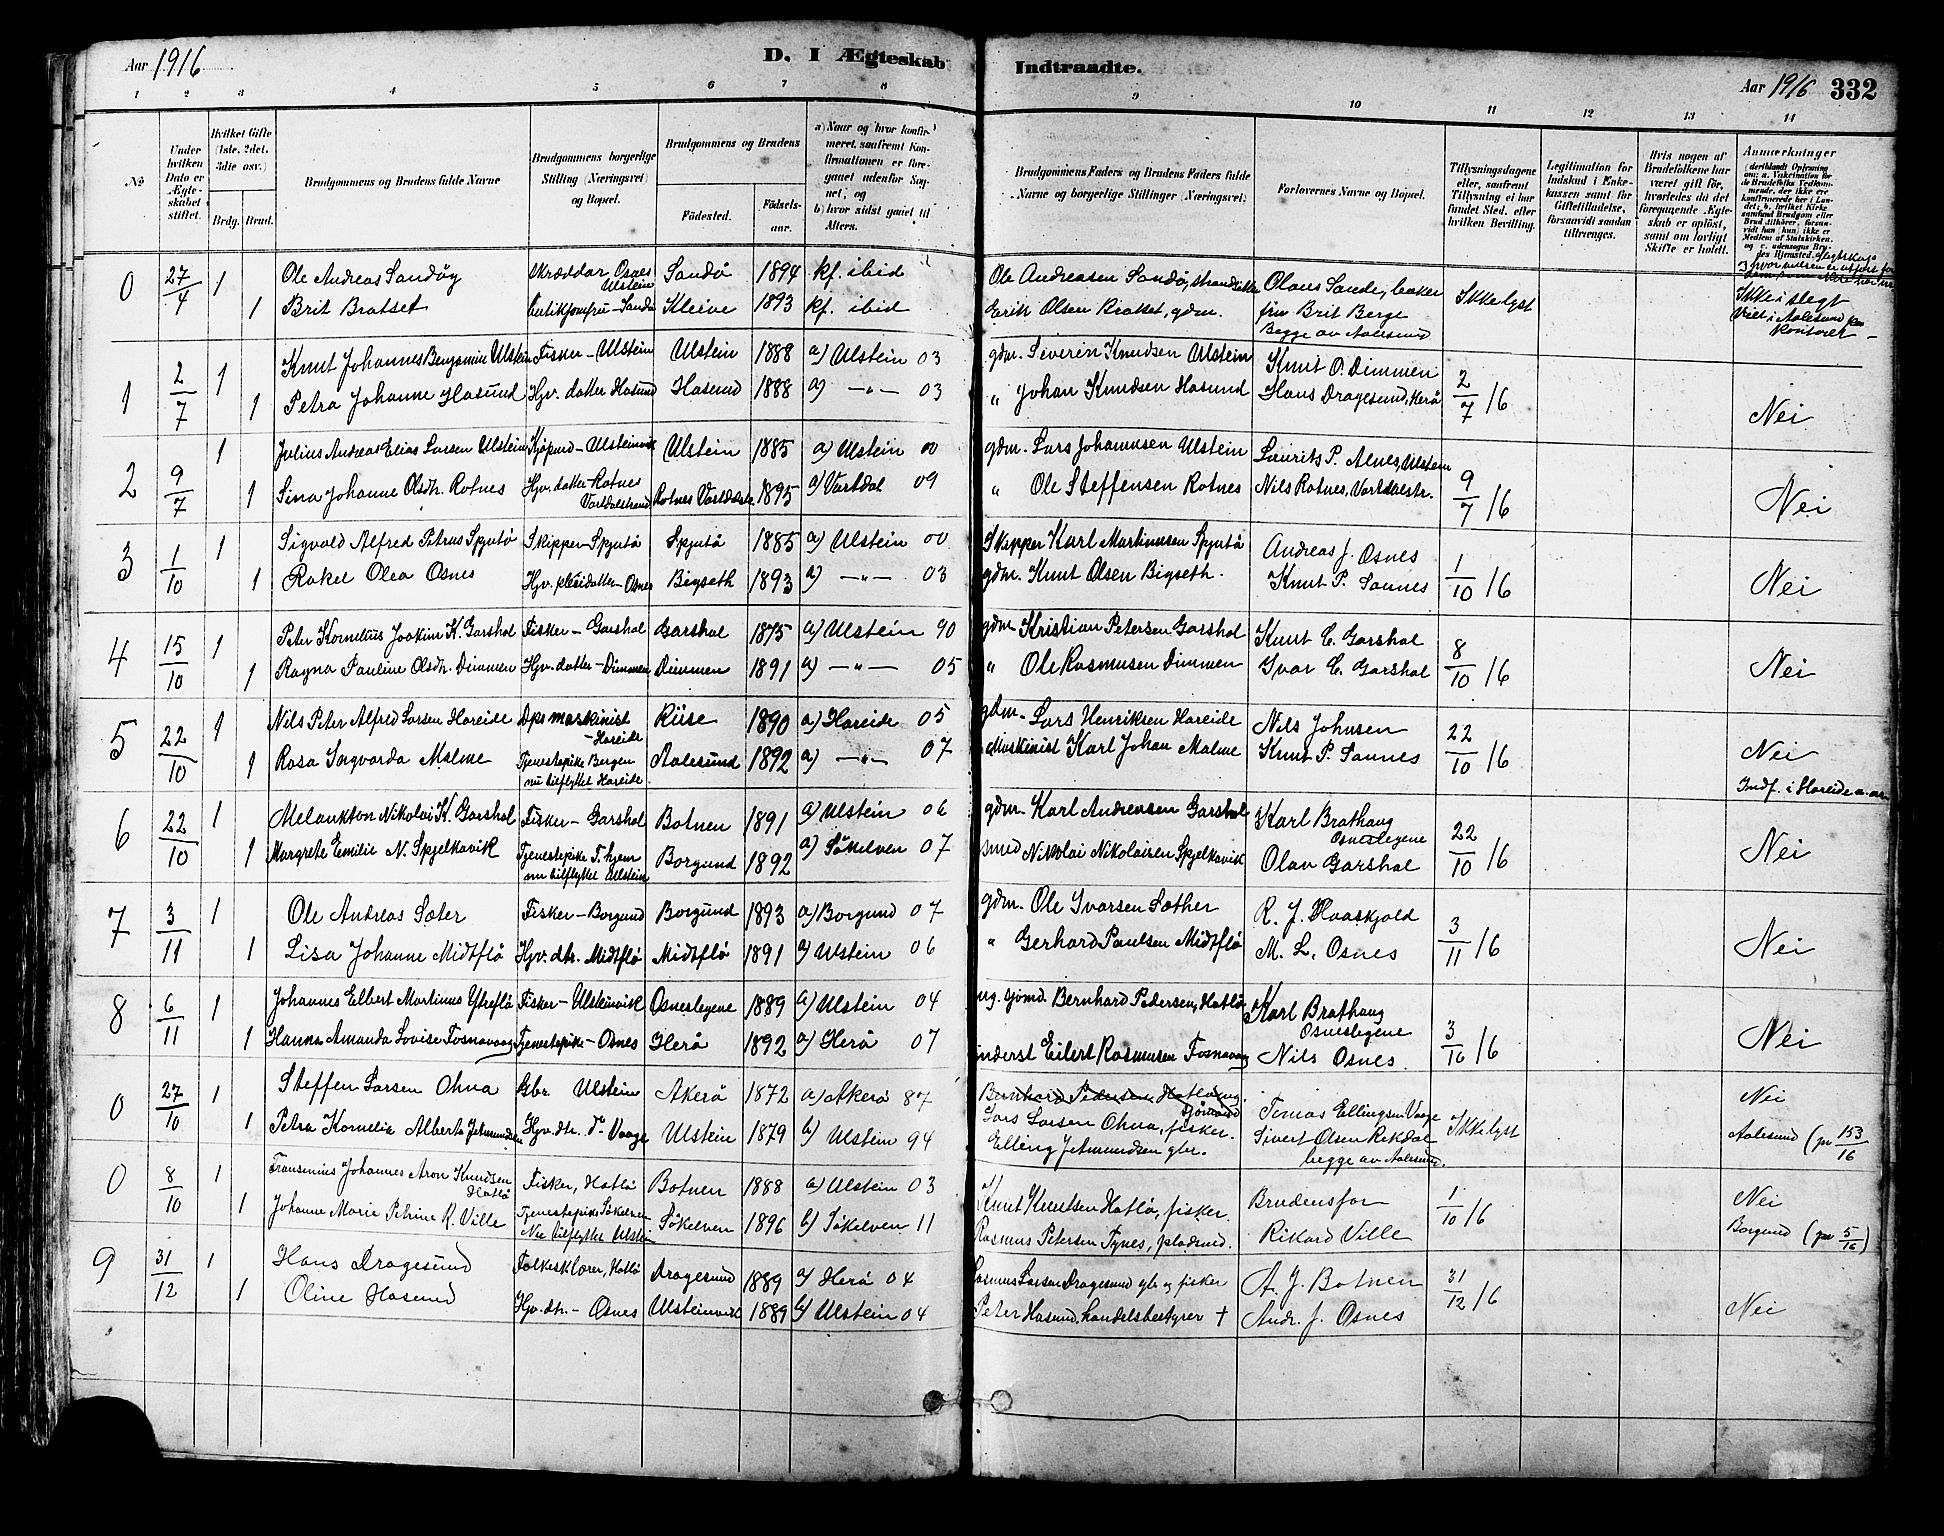 Aar 1916
D. I Ægteskab Indtraadte.
Aar 1916 332
1 2 3 4 5 6 7 8 9 10 11 12 13 14
№
Under hvilken Dato er Ægteskabet stiftet.
Hvilket Gifte (1ste, 2det, 3dte osv.)
Brdg. Brud.
Brudgommens og Brudens fulde Navne
Brudgommens borgerlige Stilling (Næringsvei) og Bopæl.
Brudgommens og Brudens
Födested.
Födselsaar.
a) Naar og hvor konfirmeret, saafremt Konfirmationen er foregaaet udenfor Sognet; og
b) hvor sidst gaaet til Alters.
Brudgommens Faders og Brudens Faders fulde Navne og borgerlige Stillinger (Næringsvei).
Forlovernes Navne og Bopæl.
Tillysningsdagene eller, saafremt Tillysning ei har fundet Sted, efter hvilken Bevilling.
Legitimation for Indskud i Enkekassen samt for Giftetilladelse, forsaavidt saadan tiltrænges.
Hvis nogen af Brudefolkene har været gift för, hvorledes da det foregaaende Ægteskab er oplöst, samt om lovligt Skifte er holdt.
Anmærkninger
0 27/4 1 Ole Andreas Sandöy Skræddar Osnes Ulstein Sandö 1894 kf. ibid Ole Andreasen Sandö, strandsidder Olaus Sande, baker Ikke lyst Ikke i slegt
1 Brit Bratset butikjomfru - Sandö Kleive 1893 kf. ibid Erik Olsen Bratset, gdm. fru Brit Berge Viet i Aalesund
Begge av Aalesund kontorer
1 2/7 1 Knut Johannes Benjamin Ulstein Fisker - Ulstein Ulstein 1888 a) Ulstein 03 gdm. Severin Knudsen Ulstein Knut O. Dimmen 2/7 16
1 Petra Johanne Hasund Hjv. datter Hasund Hasund 1888 a) —"— 03 " Johan Knudsen Hasund Hans Dragesund, Herö Nei
2 9/7 1 Julius Andreas Elias Larsen Ulstein Kjöpmd - Ulsteinvik Ulstein 1885 a) Ulstein 00 gdm. Lars Johannesen Ulstein Laurits P. Alnes, Ulstein 9/7 16
1 Sina Johanne Olsdtr. Rotnes Hjv. datter - Rotnes Vartdalstrand Rotnes Vartdalstr. 1895 a) Vartdal 09 " Ole Steffensen Rotnes Nils Rotnes, Vartdalstr. Nei
3 1/10 1 Sigvald Alfred Petrus Spjutö Skipper - Spjutö Spjutö 1885 a) Ulstein 00 Skipper Karl Martinusen Spjutö Andreas J. Osnes 1/10 16
1 Rakel Olea Osnes Hjv. pleiedatter - Osnes Bigseth 1893 a) —"— 03 gdm. Knut Olsen Bigseth. Knut P. Sannes Nei
4 15/10 1 Peter Kornelius Joakim K. Garshol Fisker - Garshol Garshol 1875 a) Ulstein 90 gdm. Kristian Petersen Garshol Knut C. Garshol 8/10 16
1 Ragna Pauline Olsdtr. Dimmen Hjv. datter - Dimmen Dimmen 1891 a) —"— 05 " Ole Rasmusen Dimmen Ivar C. Garshol Nei
5 22/10 1 Nils Peter Alfred Larsen Hareide Dps maskinist - Hareide Riise 1890 a) Hareide 05 gdm. Lars Henriksen Hareide Nils Johnsen 22/10 16
1 Rosa Ingvarda Malme Tjenestepike Bergen nu tilflyttet Hareide Aalesund 1892 a) —"— 07 Maskinist Karl Johan Malme Knut P. Sannes Nei
Indf. i Hareide
6 22/10 1 Melankton Nikolai K. Garshol Fisker - Garshol Botnen 1891 a) Ulstein 06 gdm. Karl Andreasen Garshol Karl Brathaug Osneslegene 22/10 16
1 Margrete Emilie N. Spjelkavik Tjenestepike T. hjem nu tilflyttet Ulstein Borgund 1892 a) Sökelven 07 smed Nikolai Nikolaisen Spjelkavik Olav Garshol Nei
7 3/11 1 Ole Andreas Sæter Fisker - Borgund Borgund 1893 a) Borgund 07 gdm. Ole Ivarsen Sæther R. J. Haaskjold 3/11 16
1 Lisa Johanne Midtflö Hjv. dtr. Midtflö Midtflö 1891 a) Ulstein 06 " Gerhard Paulsen Midtflö M. L. Osnes Nei
8 6/11 1 Johannes Elbert Martinus Ytreflö Fisker - Ulsteinvik Osneslegene 1889 a) Ulstein 04 ug. sjömd. Bernhard Pedersen, Hatlö Karl Brathaug Osneslegene 3/10 16
1 Hanna Amanda Lovise Fosnavaag Tjenestepike - Osnes Herö 1892 a) Herö 07 inderst Eilert Rasmusen Fosnavaag Nils Osnes. Nei
0 27/10 1 Steffen Larsen Ohna Gbr. Ulstein Akerö 1872 a) Akerö 87 Bernhard Pedersen Hatlö ug. sjömand Nei
Lars Larsen Ohna, fisker. Tomas Ellingsen Vaage Ikke lyst
1 Petra Kornelia Alberta Jetmundsen Hjv. dtr. T. Vaage Ulstein 1879 b) Ulstein 94 Elling Jetmundsen gbr. Sivert Olsen Rekdal begge av Aalesund. Aalesund (pr 153/16
0 8/10 1 Fransenius Johannes Aron Knudsen Hatlö Fisker, Hatlö Botnen 1888 a) Ulstein 03 Knut Knutsen Hatlö, fisker. Brudens far 1/10 16 Nei
1 Johanne Marie Petrine R. Ville Tjenestepike Sökelven Nu tilflyttet Ulstein Sökelven 1896 b) Sökelven 11 Rasmus Petersen Tynes, pladsmd. Rikard Ville Borgund (pr 5/16)
9 31/12 1 Hans Dragesund Folkeskolelærer, Hatlö Dragesund 1889 a) Herö 04 Rasmus Larsen Dragesund gbr og fisker A. J. Botnen 31/12 16
1 Oline Hasund Hjv. dtr. - Osnes Ulsteinvik 1889 b) Ulstein 04 Peter Hasund, handelsbestyrer † Andr. J. Osnes Nei